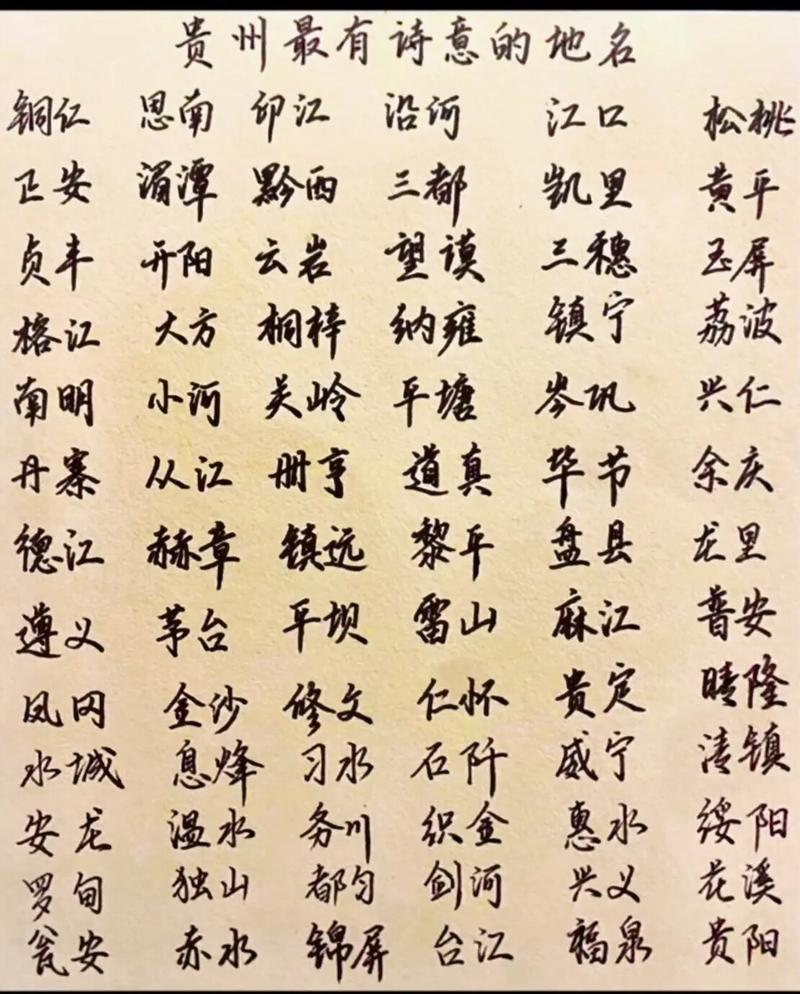 贵州最有诗意的地名
铜仁 思南 印江 沿河 江口 松桃
正安 湄潭 黔西 三都 凯里 黄平
贞丰 开阳 云岩 望谟 三穗 玉屏
榕江 大方 桐梓 纳雍 镇宁 荔波
南明 小河 关岭 平塘 岑巩 兴仁
丹寨 从江 册亨 道真 毕节 余庆
德江 赫章 镇远 黎平 盘县 龙里
遵义 茅台 平坝 雷山 麻江 普安
凤冈 金沙 修文 仁怀 贵定 晴隆
水城 息烽 习水 石阡 威宁 清镇
安龙 温水 务川 织金 惠水 绥阳
罗甸 独山 都匀 剑河 兴义 花溪
瓮安 赤水 锦屏 台江 福泉 贵阳